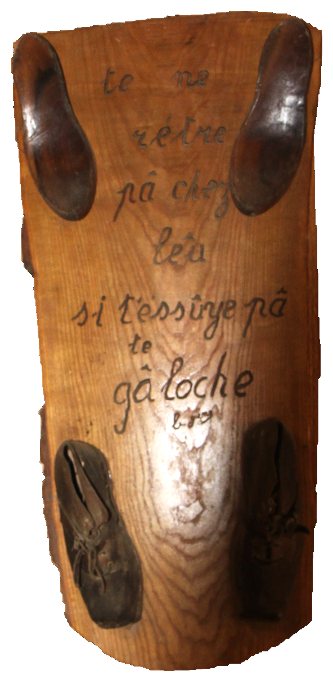 te ne
rétre
pâ chez
lêu
si t'essûye pâ
te
gâloche